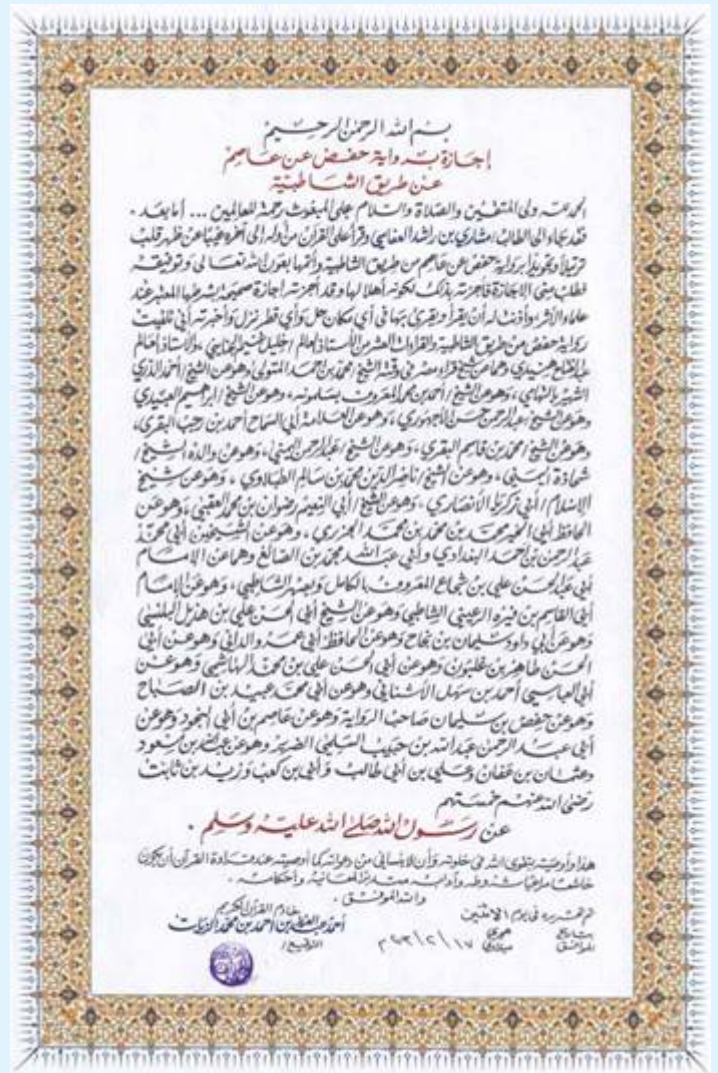 بسم الله الرحمن الرحيم
إجازة برواية حفص عن عاصم
عن طريق الشاطبية
الحمد لله ولي المتقين والصلاة والسلام على المبعوث رحمة للعالمين ... أما بعد .
فقد جاء إلى الطالب / مشاري بن راشد العفاسي وقرأ على القرآن من أوله إلى آخره غيبا عن ظهر قلب
ترتيلا وتجويدا برواية حفص عن عاصم من طريق الشاطبية وأتمها بعون الله تعالى وتوفيقه
فطلب منى الإجازة فأجزته بذلك لكونه أهلا لها وقد أجزته إجازة صحيحة بشرطها المعتبر عند
علماء الأثر وأذنت له أن يقرأ ويقرئ بها في أي مكان حل وأي قطر نزل وأخبرته أني تلقيت
رواية حفص من طريق الشاطبية والقراءات العشر من الأستاذ العالم / خليل غنيم الجنايني والأستاذ العالم
عبد الفتاح هنيدي وهما عن شيخ قراء مصر في وقته الشيخ محمد بن أحمد المتولى وهو عن الشيخ / أحمد الدري
الشهير بالتهامي ، وهو عن الشيخ / أحمد بن محمد المعروف بسلمونه ، وهو عن الشيخ / إبراهيم العبيدي
وهو عن الشيخ / عبد الرحمن حسن الأجهوري ، وهو عن العلامة أبي السماح أحمد بن رجب البقري ،
وهو عن الشيخ / محمد بن قاسم البقري ، وهو عن الشيخ / عبد الرحمن اليمني ، وهو عن والده الشيخ /
شحاذة اليمني ، وهو عن الشيخ / ناصر الدين محمد بن سالم الطبلاوي ، وهو عن شيخ
الإسلام / أبي زكريا الأنصاري ، وهو عن الشيخ / أبي النعيم رضوان بن محمد العقبي ، وهو عن
الحافظ أبي الخير محمد بن محمد بن محمد الجزري ، وهو عن الشيخين أبي محمد
عبد الرحمن بن أحمد البغدادي وأبي عبد الله محمد بن الصائغ وهما عن الإمام
أبي عبد الحسن علي بن شجاع المعروف بالكامل وبصهر الشاطبي ، وهو عن الإمام
أبي القاسم بن فيره الرعيني الشاطبي وهو عن الشيخ أبي الحسن علي بن هذيل البلنسي
وهو عن أبي داود سليمان بن نجاح وهو عن الحافظ أبي عمرو الداني وهو عن أبي
الحسن طاهر بن غلبون وهو عن أبي الحسن علي بن محمد الهاشمي وهو عن
أبي العباسي أحمد بن سهل الأشناني وهو عن أبي محمد عبيد بن الصباح
وهو عن حفص بن سليمان صاحب الرواية وهو عن عاصم بن أبي النجود وهو عن
أبي عبد الرحمن عبد الله بن حبيب السلمي الضرير وهو عن عبد الله بن مسعود
وعثمان بن عفان وعلي بن أبي طالب وأبي بن كعب وزيد بن ثابت
رضي الله عنهم خمستهم
عن رسول الله صلى الله عليه وسلم .
هذا وأوصيه بتقوى الله في خلوته وأن لا ينساني من دعواته كما أوصيته عند قراءة القرآن أن يكون
خاشعا مراعيا شروطه وآدابه متدبرا لمعانيه وأحكامه .
والله الموفق .
تم تحريره في يوم الاثنين
خادم القرآن الكريم
بتاريخ هجري
أحمد عبد العزيز بن أحمد بن محمد الزيات
الموافق ميلادي
التوقيع /